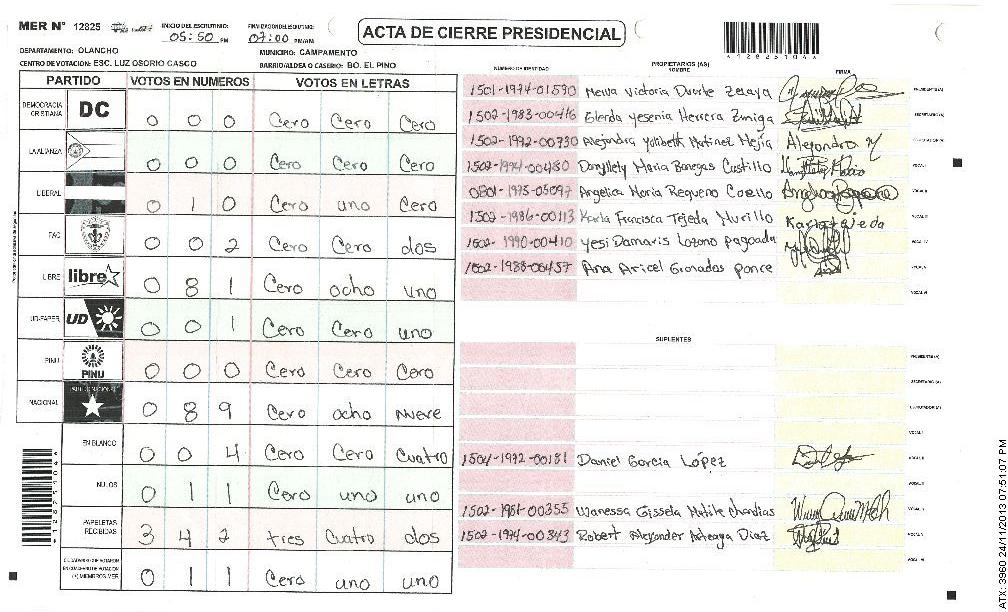 MER N° 12825
INICIO DEL ESCRUTINIO: 05:50 PM
FINALIZACION DEL ESCRUTINIO: 07:00 PM/AM
ACTA DE CIERRE PRESIDENCIAL
*12825104*
DEPARTAMENTO: OLANCHO
MUNICIPIO: CAMPAMENTO
CENTRO DE VOTACION: ESC. LUZ OSORIO CASCO
BARRIO/ALDEA O CASERIO: BO. EL PINO
PARTIDO VOTOS EN NUMEROS VOTOS EN LETRAS
DEMOCRACIA CRISTIANA DC 0 0 0 Cero Cero Cero
LA ALIANZA 0 0 0 Cero Cero Cero
LIBERAL 0 1 0 Cero uno Cero
FAC 0 0 2 Cero Cero dos
LIBRE libre 0 8 1 Cero ocho uno
UD-FAPER UD 0 0 1 Cero Cero uno
PINU PINU 0 0 0 Cero Cero Cero
NACIONAL PARTIDO NACIONAL 0 8 9 Cero ocho Nueve
EN BLANCO 0 0 4 Cero Cero Cuatro
NULOS 0 1 1 Cero uno uno
PAPELETAS RECIBIDAS 3 4 2 tres Cuatro dos
(+) MIEMBROS MER 0 1 1 Cero uno uno
NÚMERO DE IDENTIDAD PROPIETARIOS (AS) NOMBRE FIRMA
1501-1974-01590 Melva Victoria Duarte Zelaya PRESIDENTE (A)
1502-1983-00416 Elerda Yesenia Herrera Zuniga SECRETARIO (A)
1502-1992-00730 Alejandra Yolibeth Matinez Mejía Alejandra M
1502-1994-00480 Danyllely Maria Banegas Castillo VOCAL I
0801-1973-05097 Angelica Maria Requeno Coello VOCAL II
1502-1986-00113 Karla Francisca Tejeda Murillo Karla Tejeda VOCAL III
1502-1990-00410 Yesi Damaris Lozano pagoada VOCAL IV
1502-1988-00457 Ana Aricel Granados ponce VOCAL V
VOCAL VI
SUPLENTES
PRESIDENTE (A)
SECRETARIO (A)
ESCRUTADOR (A)
VOCAL I
1504-1972-00181 Daniel Garcia López VOCAL II
VOCAL III
1502-1981-00355 Wanessa Gissela Matute VOCAL IV
1502-1994-00343 Robert Alexander Diaz VOCAL V
VOCAL VI
*12825104*
ATX: 3960 24/11/2013 07:51:07 PM